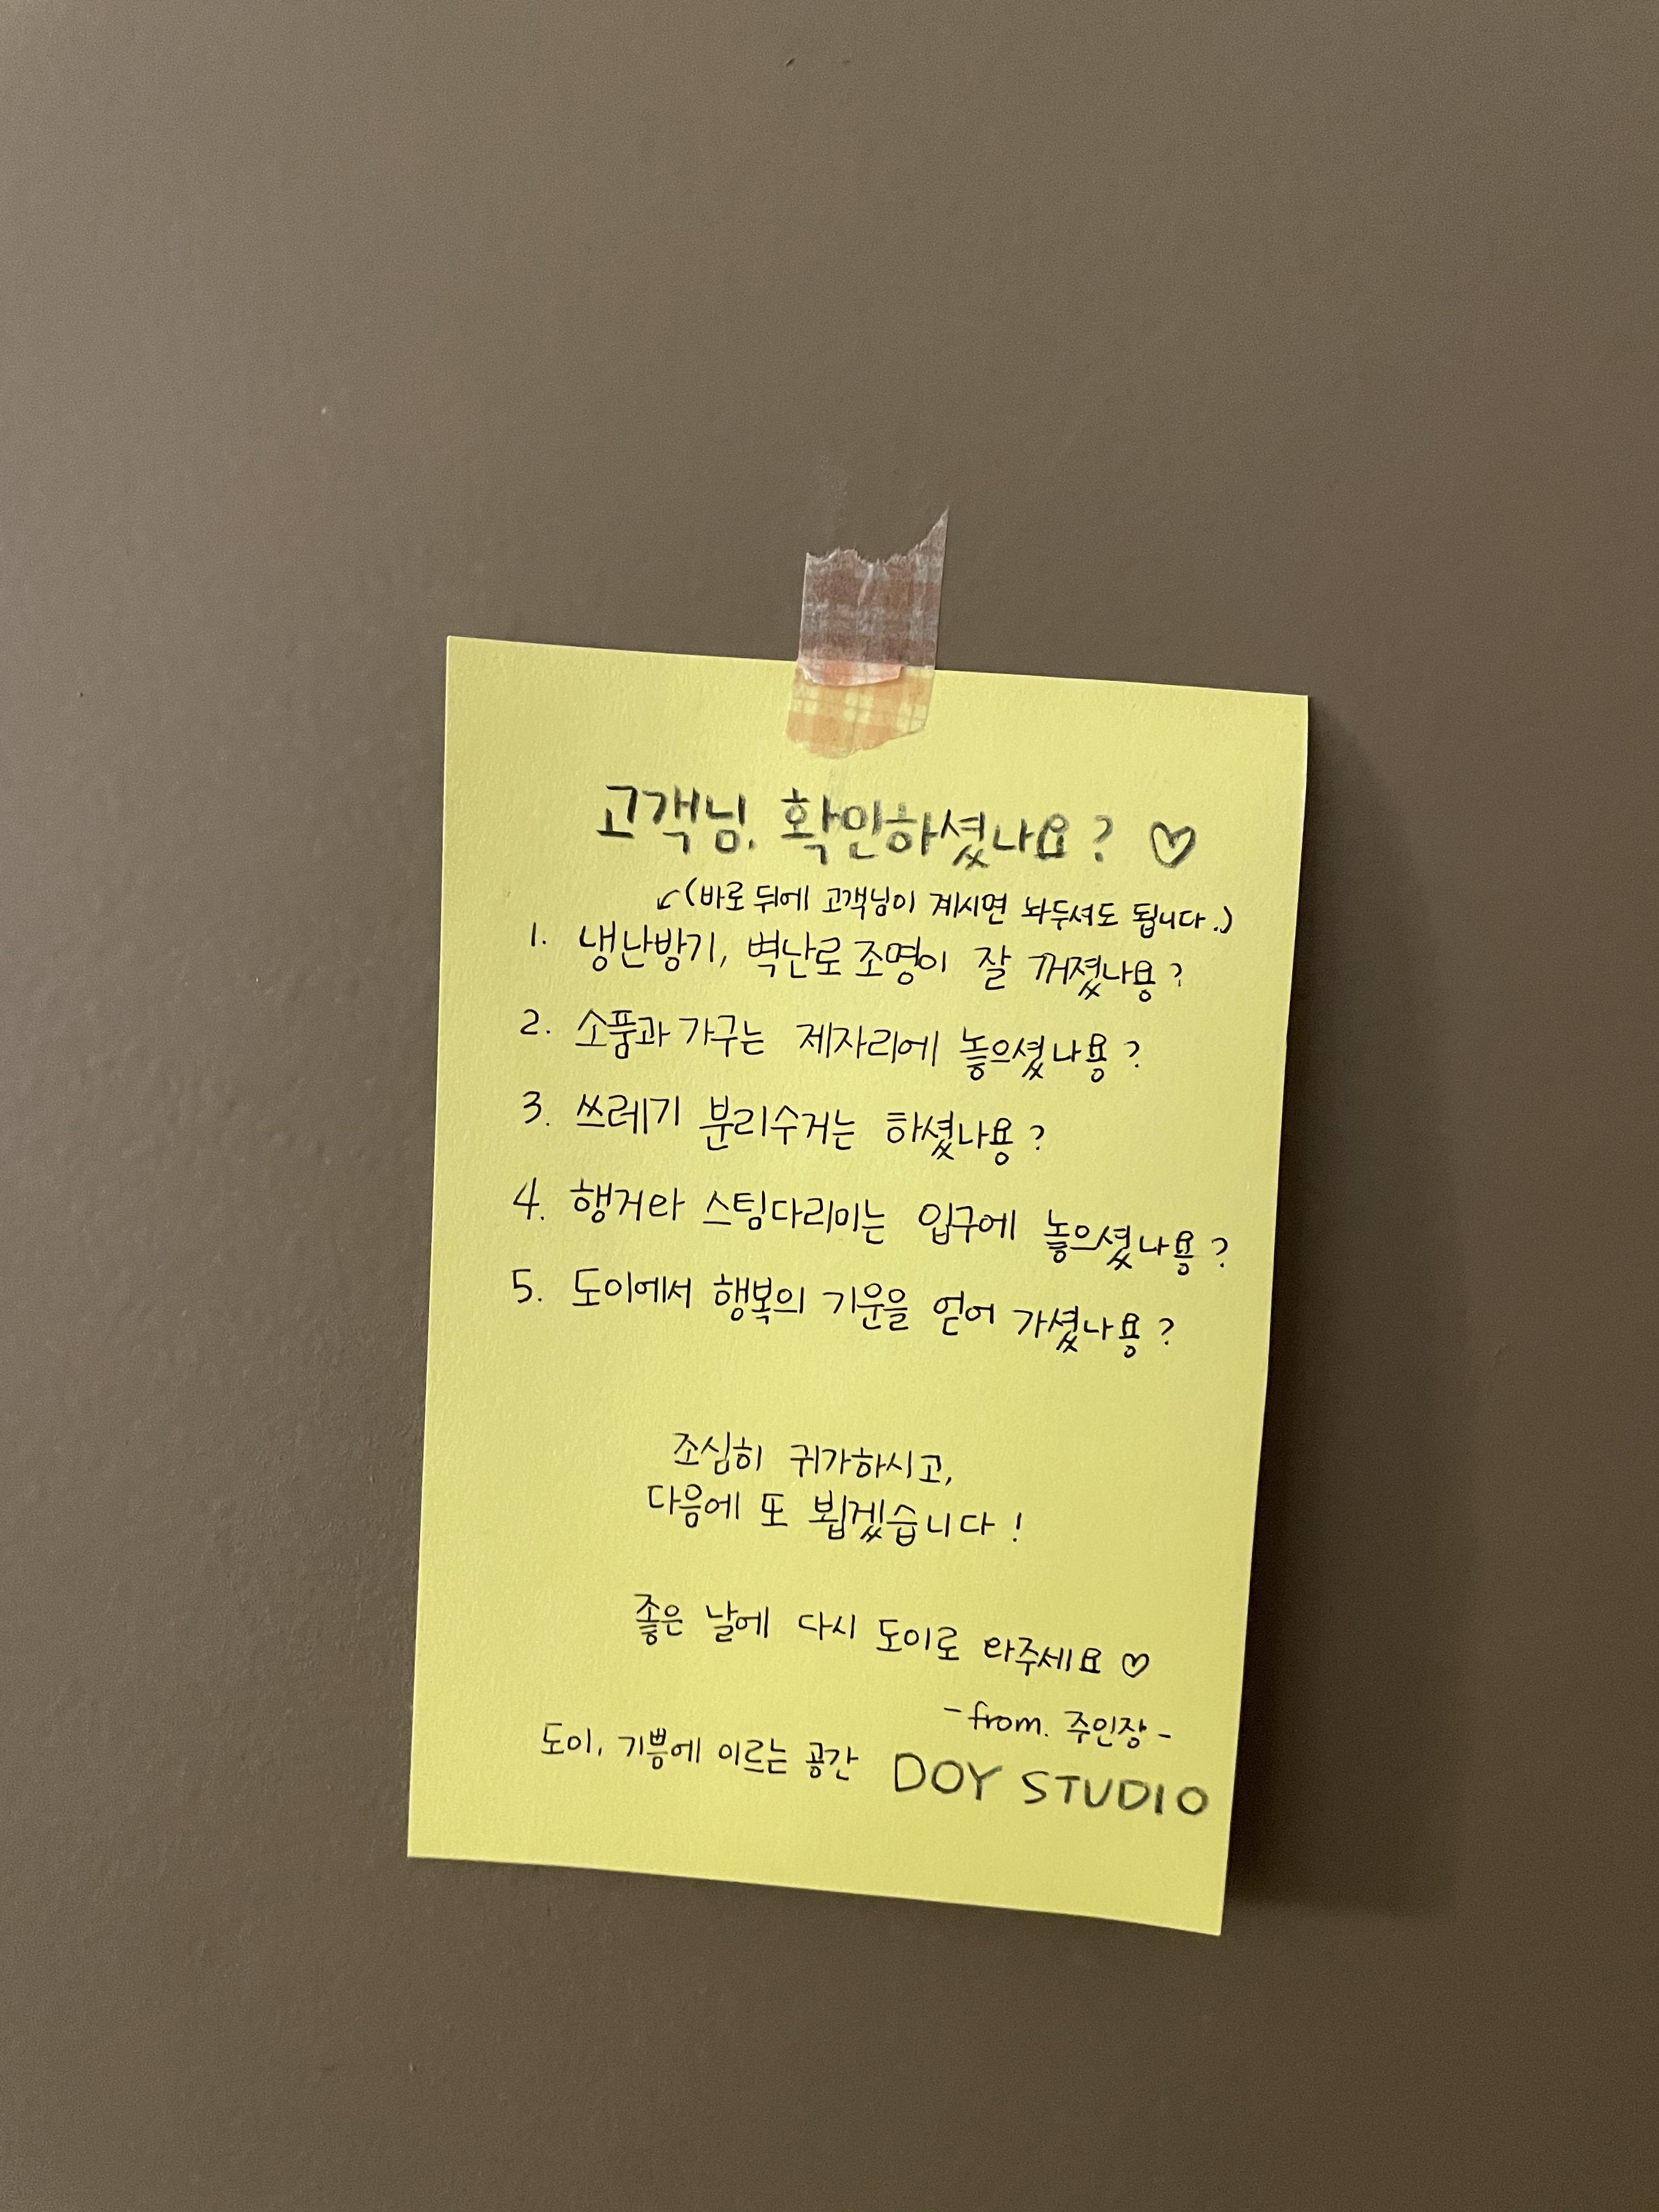 고객님, 확인하셨나요? ♡
↙(바로 뒤에 고객님이 계시면 놔두셔도 됩니다.)
1. 냉난방기, 벽난로 조명이 잘 꺼졌나용?
2. 소품과 가구는 제자리에 놓으셨나용?
3. 쓰레기 분리수거는 하셨나용?
4. 행거와 스팀다리미는 입구에 놓으셨나용?
5. 도이에서 행복의 기운을 얻어 가셨나용?
조심히 귀가하시고,
다음에 또 뵙겠습니다!
좋은 날에 다시 도이로 와주세요♡
-from. 주인장-
도이, 기쁨에 이르는 공간 DOY STUDIO